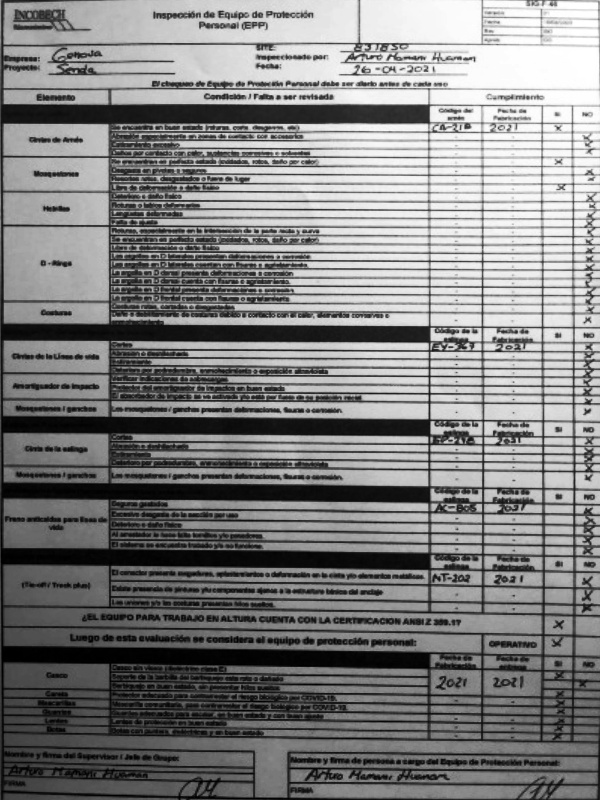 SIG-F-46
INCOBECH
Inspección de Equipo de Protección
Personal (EPP)
Empresa: Genova
Proyecto: Senda
SITE: 831850
Inspeccionado por: Arturo Mamani Huaman
Fecha: 26-04-2021
El chequeo de Equipo de Protección Personal debe ser diario antes de cada uso
Elemento Condición / Falta a ser revisada Cumplimiento
Código del arnés Fecha de Fabricación SI NO
Cintas de Arnés
Se encuentra en buen estado (roturas, corte, desgarros, etc) CA-218 2021 X
Abrasión especialmente en zonas de contacto con accesorios X
Estiramiento excesivo X
Daños por contacto con calor, sustancias corrosivas o solventes X
Mosquetones
Se encuentran en perfecto estado (oxidados, rotos, daño por calor) X
Desgaste en pivotes o seguros X
Resortes rotos, desgastados o fuera de lugar X
Hebillas
Libre de deformación o daño físico X
Deterioro o daño físico X
Roturas o lados deformados X
Lengüetas deformadas X
Falta de ajuste X
D - Rings
Rotura, especialmente en la intersección de la parte recta y curva X
Se encuentran en perfecto estado (oxidados, rotos, daño por calor) X
Libre de deformación o daño físico X
Las argollas en D laterales presentan deformaciones o corrosión X
Las argollas en D laterales cuentan con fisuras o agrietamiento. X
La argolla en D dorsal presenta deformaciones o corrosión X
La argolla en D dorsal cuenta con fisuras o agrietamiento. X
La argolla en D frontal presenta deformaciones o corrosión. X
La argolla en D frontal cuenta con fisuras o agrietamiento X
Costuras
Costuras rotas, corridas o desgastadas X
Daño o debilitamiento de costuras debido a contacto con el calor, elementos corrosivos o X
Código de la eslinga Fecha de Fabricación SI NO
Cintas de la Línea de vida
Cortes EY-367 2021 X
Abrasión o deshilachado X
Estiramiento X
Deterioro por podredumbre, enmohecimiento o exposición ultravioleta X
Amortiguador de impacto
Verificar indicaciones de sobrecargas X
Protector del amortiguador de impactos en buen estado X
El absorbedor de impacto se ve activado y/o está por fuera de su posición inicial. X
Mosquetones / ganchos Los mosquetones / ganchos presentan deformaciones, fisuras o corrosión. X
Código de la eslinga Fecha de Fabricación SI NO
Cinta de la eslinga
Cortes EP-298 2021 X
Abrasión o deshilachado X
Estiramiento X
Deterioro por podredumbre, enmohecimiento o exposición ultravioleta X
Mosquetones / ganchos Los mosquetones / ganchos presentan deformaciones, fisuras o corrosión. X
Código de la eslinga Fecha de Fabricación SI NO
Freno anticaídas para línea de vida
Seguros gastados AC-805 2021 X
Excesivo desgaste de la sección por uso X
Deterioro o daño físico X
Al arrestador le hace falta tornillos y/o pasadores. X
El sistema se encuentra trabado y/o no funciona. X
Código de la eslinga Fecha de Fabricación SI NO
(Tie-off / Track plus)
El conector presenta rasgaduras, aplastamientos o deformación en la cinta y/o elementos metálicos. NT-202 2021 X
Existe presencia de pinturas y/o componentes ajenos a la estructura básica del anclaje X
Las uniones y/o las costuras presentan hilos sueltos. X
¿EL EQUIPO PARA TRABAJO EN ALTURA CUENTA CON LA CERTIFICACION ANSI Z 359.1? X
Luego de esta evaluación se considera el equipo de protección personal: OPERATIVO X
Fecha de Fabricación Fecha de entrega SI NO
Casco
Casco sin visera (dieléctrico clase E) 2021 2021 X
Soporte de la barbilla del barbiquejo esta roto o dañado X
Barbiquejo en buen estado, sin presentar hilos sueltos X
Careta Protector adecuado para contrarrestar el riesgo biológico por COVID-19. X
Mascarillas Mascarilla comunitaria, para contrarrestar el riesgo biológico por COVID-19. X
Guantes Guantes adecuados para escalar, en buen estado y con buen ajuste X
Lentes Lentes de protección en buen estado X
Botas Botas con puntera, dieléctricas y en buen estado X
Nombre y firma del Supervisor / Jefe de Grupo:
Arturo Mamani Huaman
FIRMA
Nombre y firma de persona a cargo del Equipo de Protección Personal:
Arturo Mamani Huaman
FIRMA